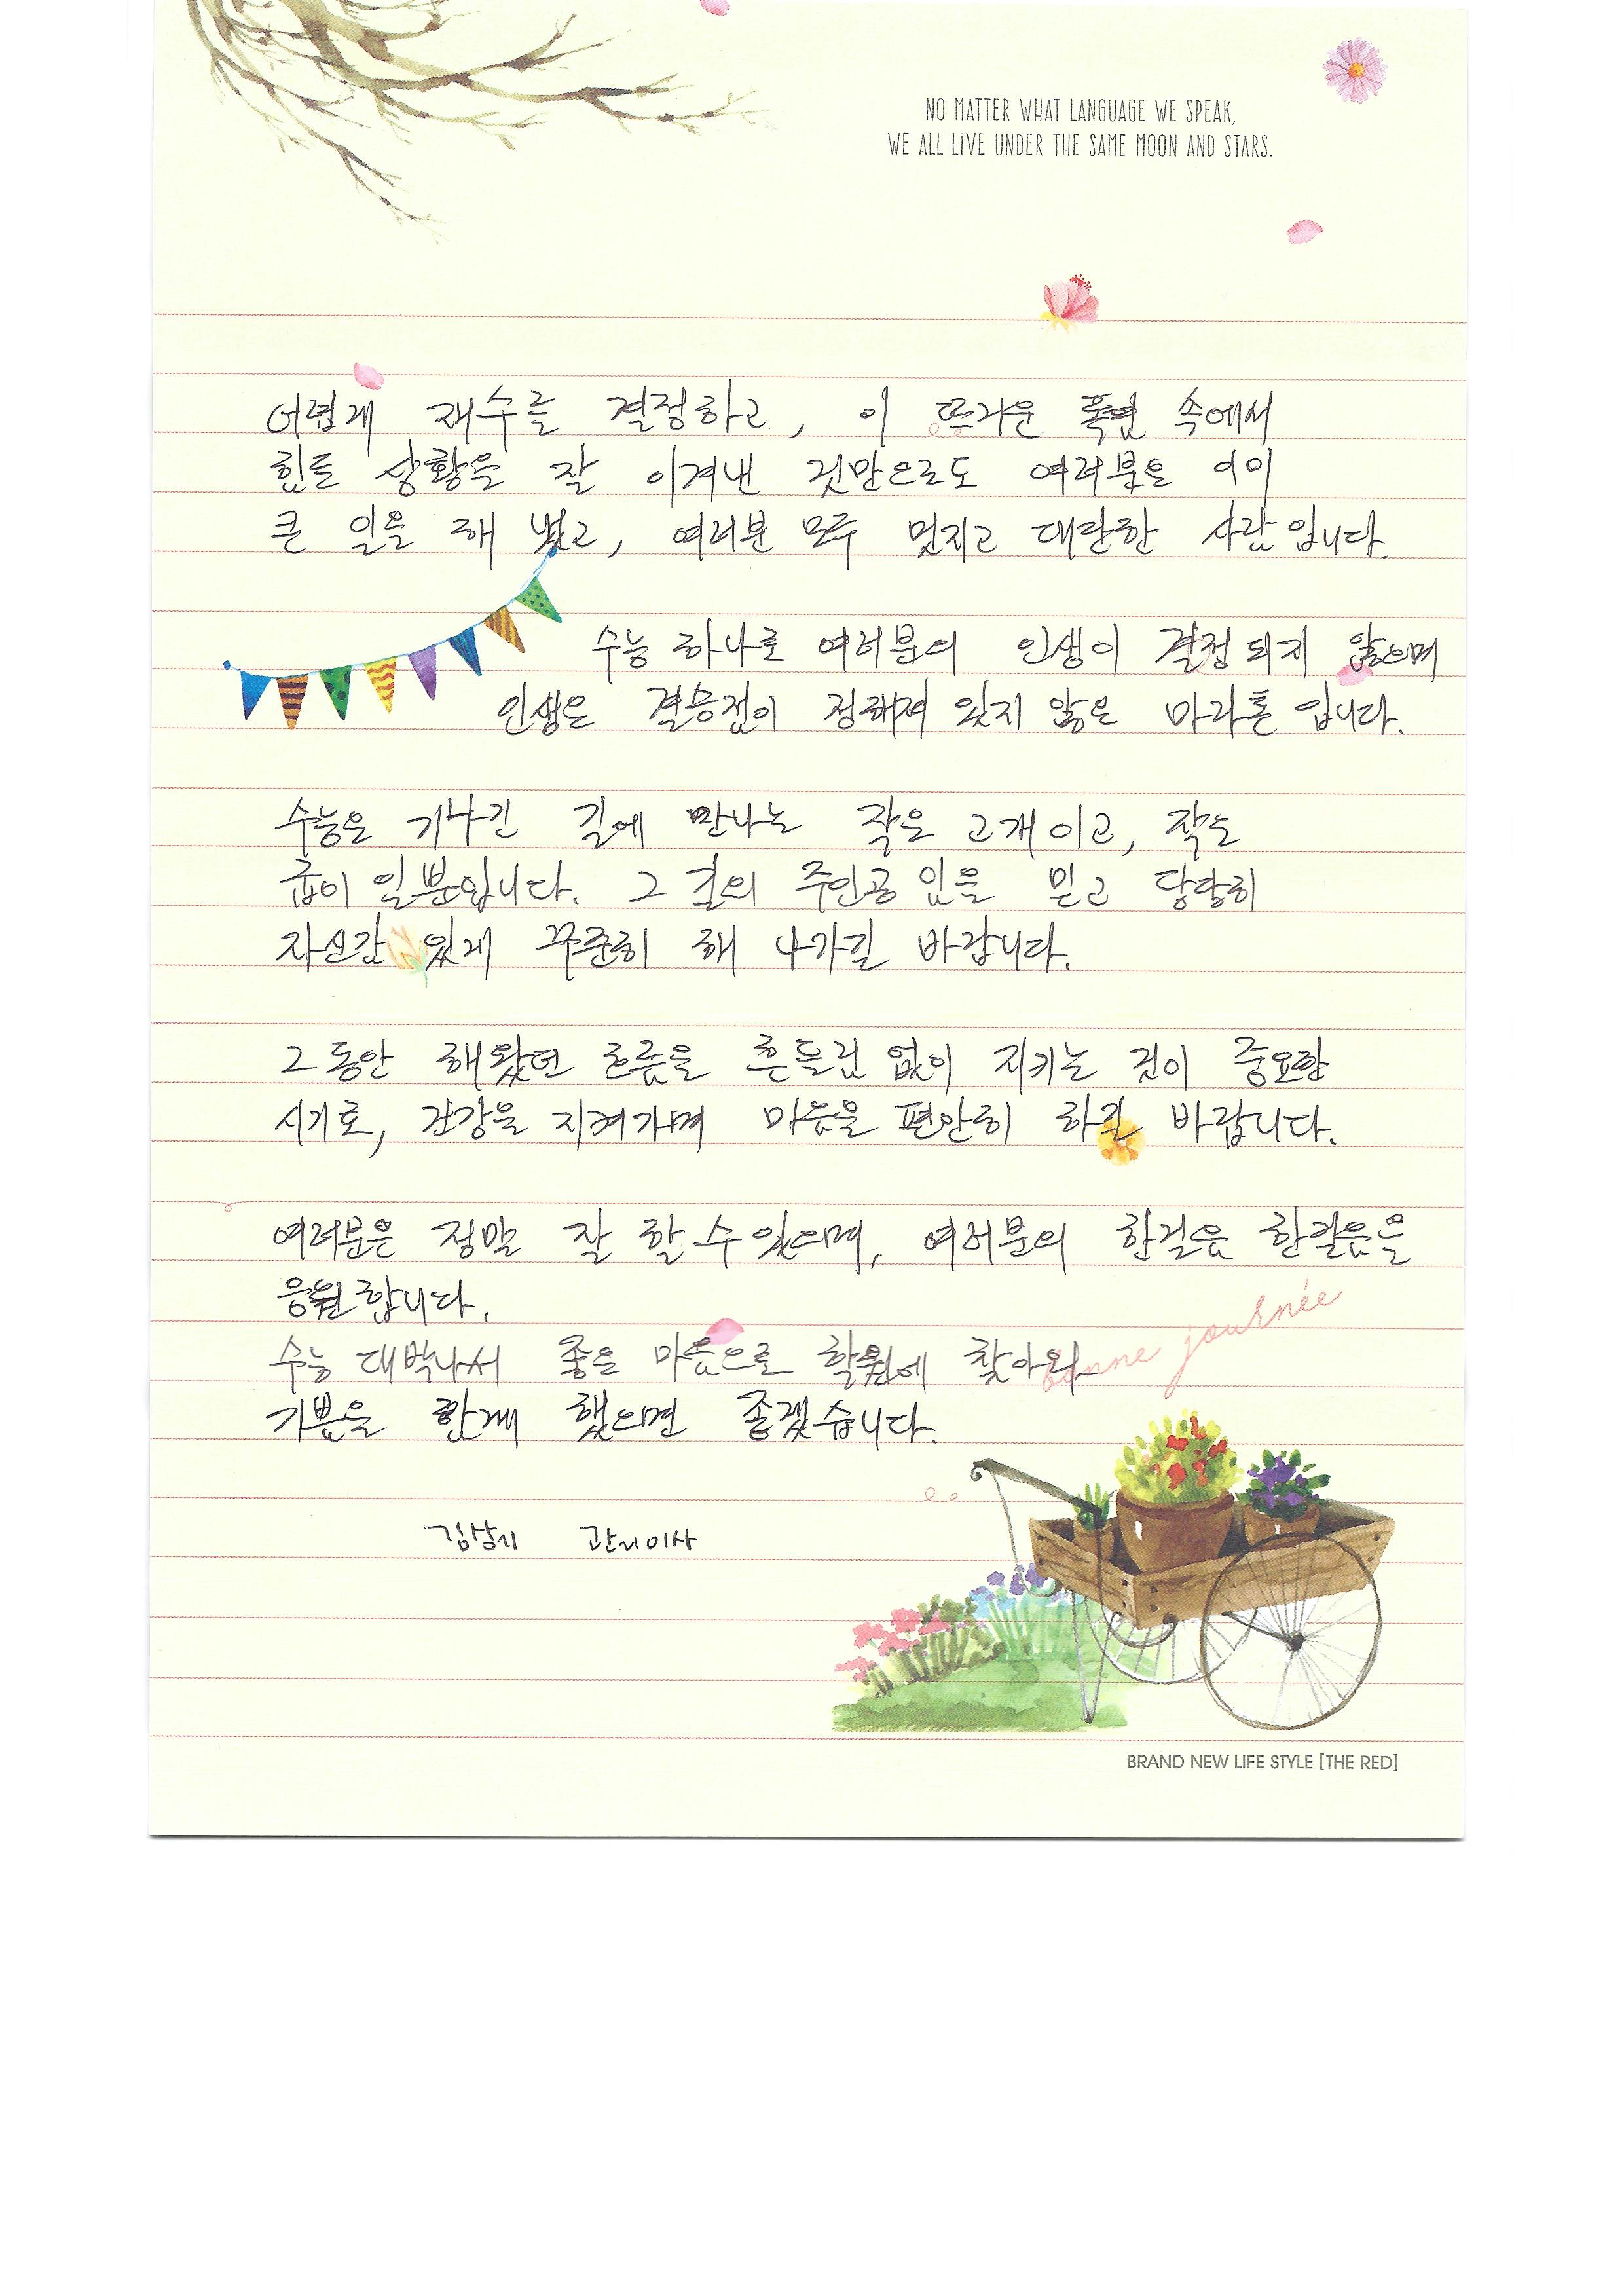 NO MATTER WHAT LANGUAGE WE SPEAK,
WE ALL LIVE UNDER THE SAME MOON AND STARS.
어렵게 재수를 결정하고, 이 뜨거운 폭염 속에서
힘든 상황을 잘 이겨낸 것만으로도 여러분은 이미
큰 일을 해 냈고, 여러분 모두 멋지고 대단한 사람입니다.
수능 하나로 여러분의 인생이 결정되지 않으며
인생은 결승점이 정해져 있지 않은 마라톤 입니다.
수능은 기나긴 길에 만나는 작은 고개이고, 작은
굽이 일 뿐입니다. 그 길의 주인공 임을 믿고 당당히
자신감 있게 꾸준히 해 나가길 바랍니다.
그 동안 해왔던 흐름을 흔들림 없이 지키는 것이 중요한
시기로, 건강을 지켜가며 마음을 편안히 하길 바랍니다.
여러분은 정말 잘 할 수 있으며, 여러분의 한걸음 한걸음을
응원합니다.
수능 대박나서 좋은 마음으로 학원에 찾아와
bonne journée
기쁨을 함께 했으면 좋겠습니다.
관리이사
BRAND NEW LIFE STYLE [THE RED]